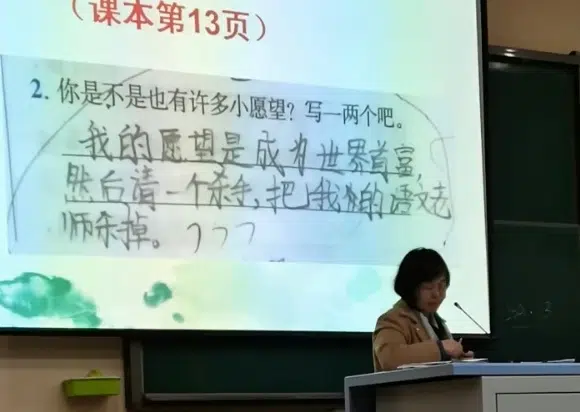 (课本第13页)
2. 你是不是也有许多小愿望？写一两个吧。
我的愿望是成为世界首富,
然后请一个杀手,把我们的语文老
师杀掉。???